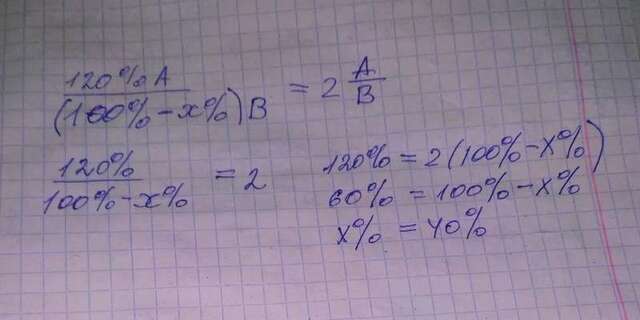 120% A / (100% - x%) B = 2 A/B
120% / 100% - x% = 2
120% = 2(100% - x%)
60% = 100% - x%
x% = 40%